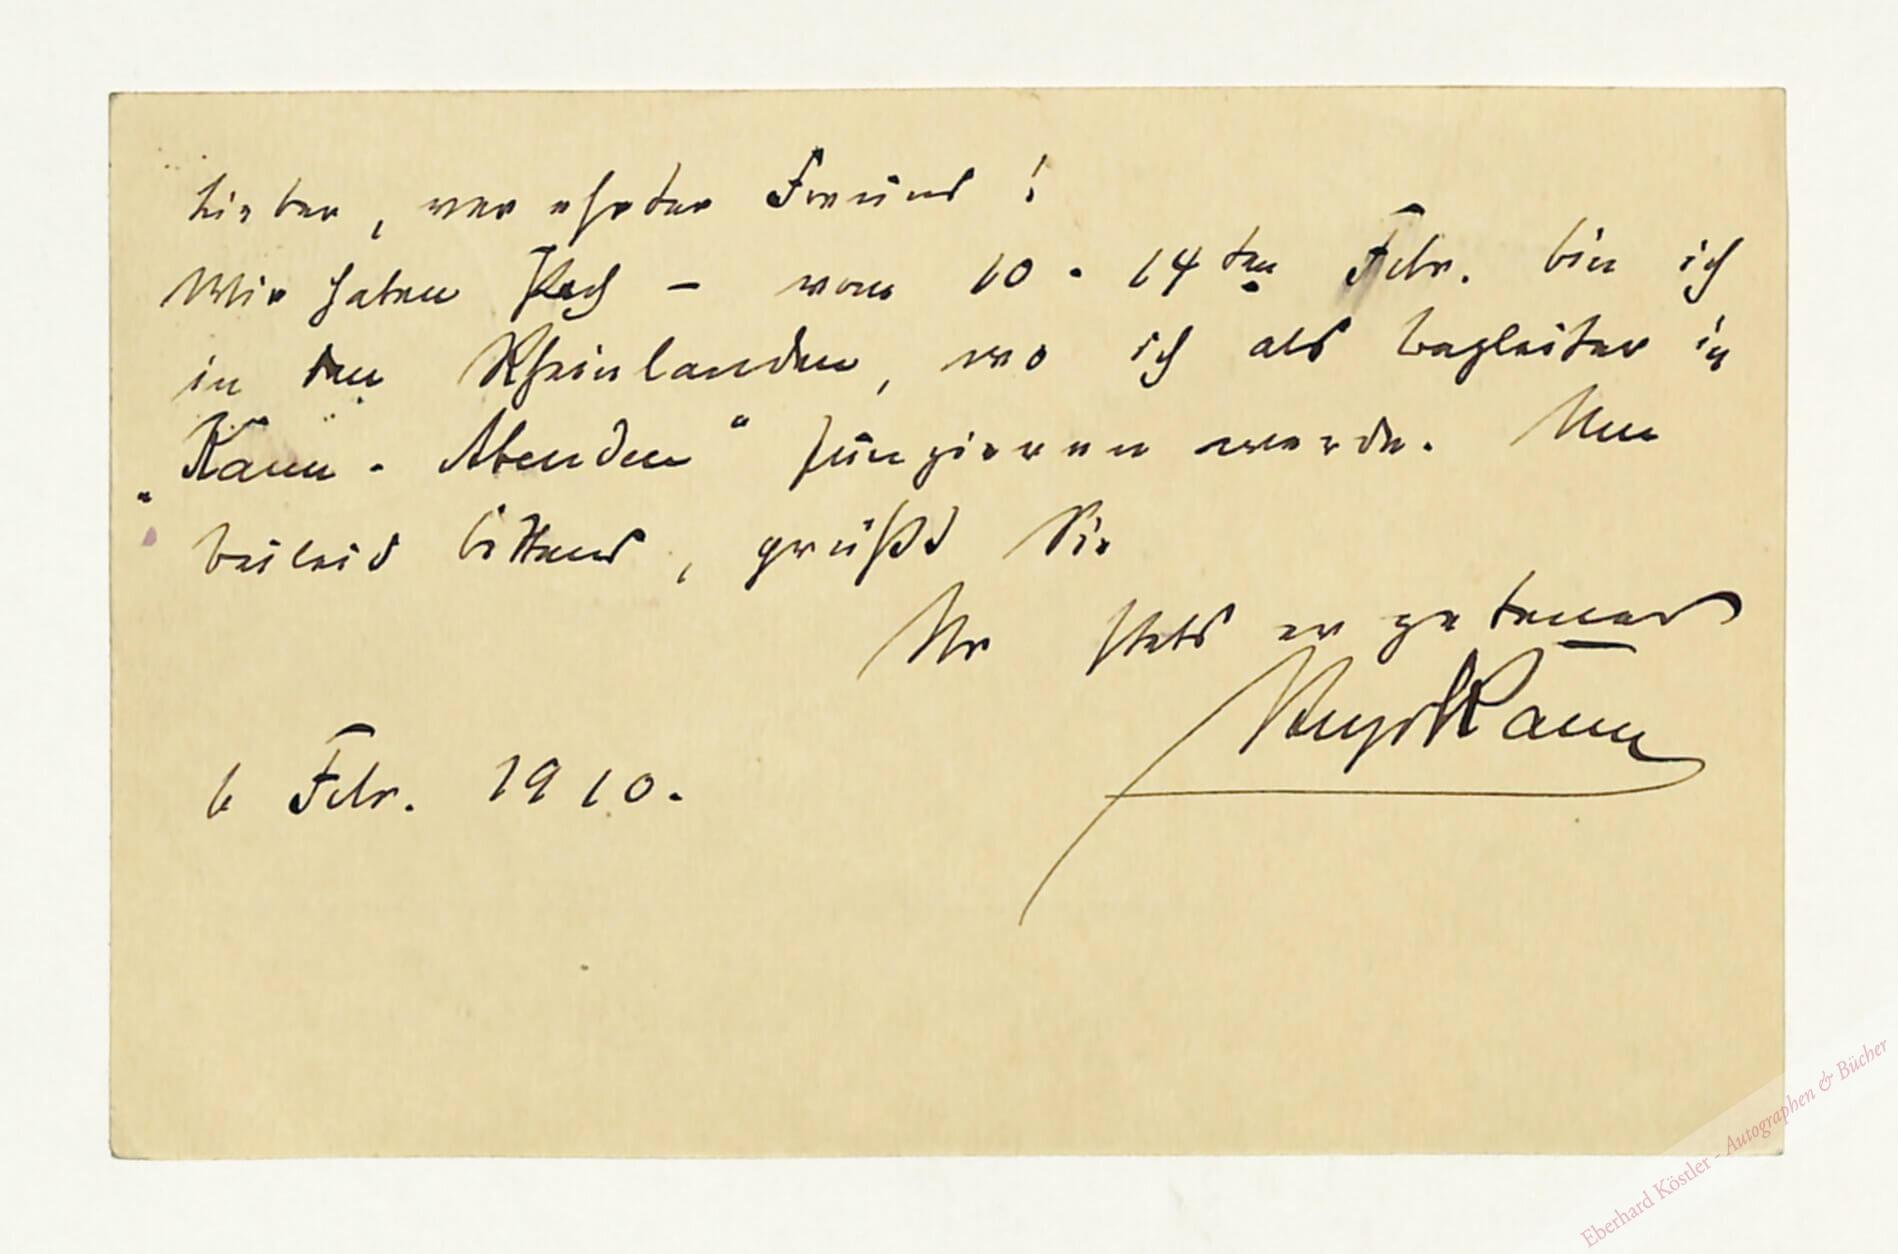 Lieber, verehrter Freund!
Wir haben Pech – vom 10 - 14ten Febr. bin ich
in den Rheinlanden, wo ich als Begleiter in
„Kaun - Abenden“ fungieren werde. Um
Beileid bittend, grüßt Sie
Ihr stets ergebener
Hugo Kaun
6 Febr. 1910.
Eberhard Köstler - Autographen & Bücher